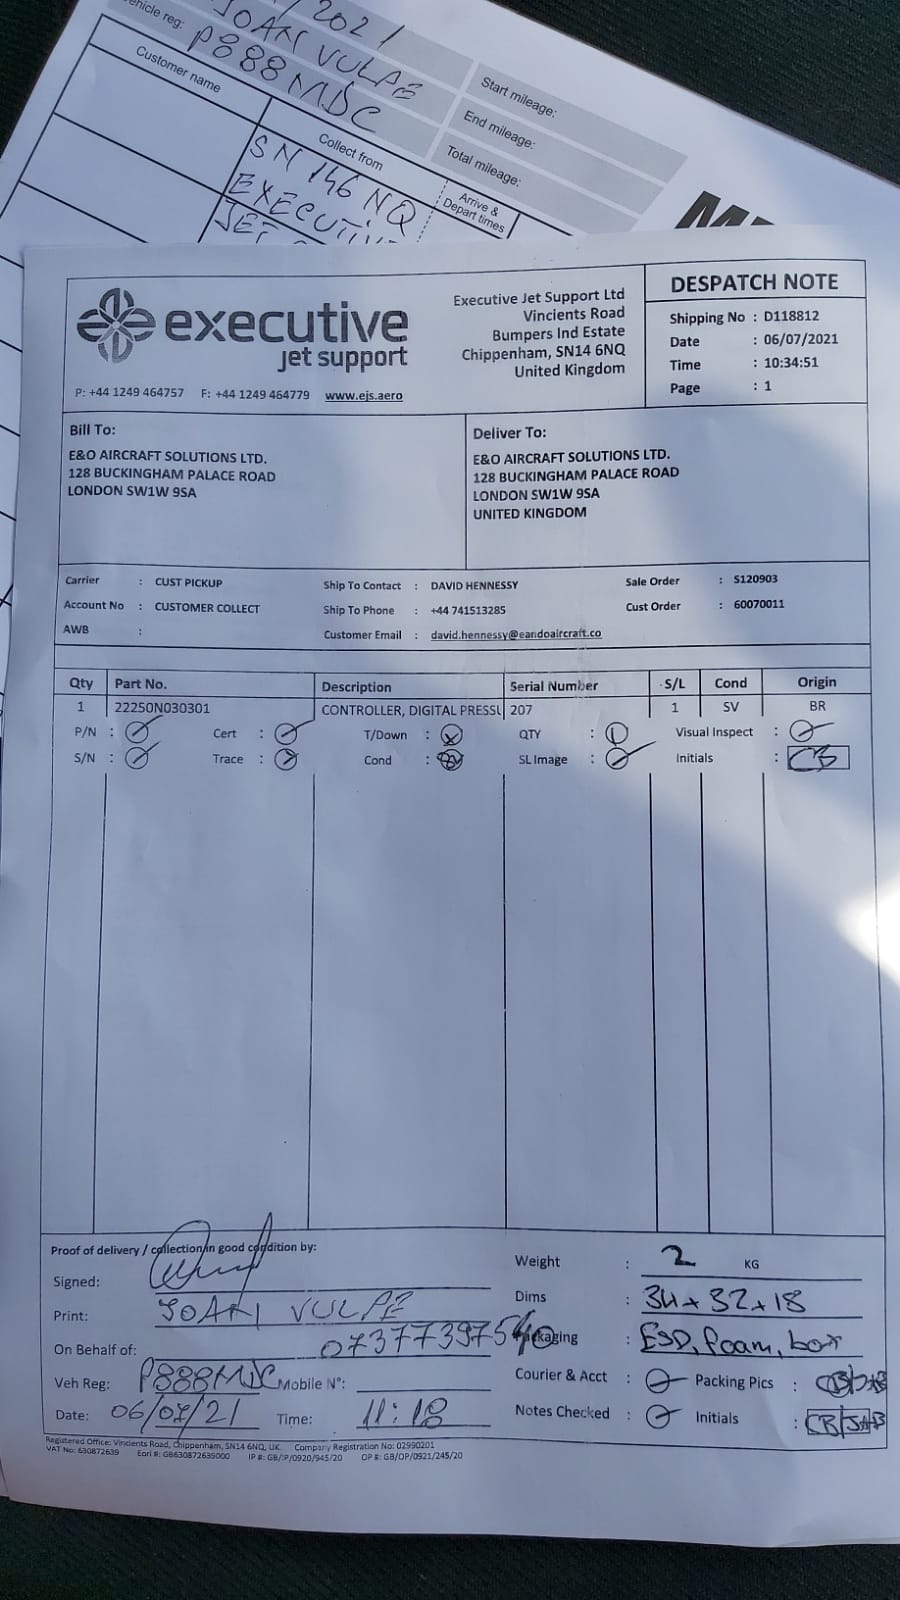 2021
Vehicle reg:
JOAN VULPE
P888MDC
Start mileage:
End mileage:
Total mileage:
Customer name
Collect from
Arrive &
Depart times
SN146NQ
EXECUTIVE
JET
executive
jet support
P: +44 1249 464757 F: +44 1249 464779 www.ejs.aero
Executive Jet Support Ltd
Vincients Road
Bumpers Ind Estate
Chippenham, SN14 6NQ
United Kingdom
DESPATCH NOTE
Shipping No : D118812
Date : 06/07/2021
Time : 10:34:51
Page : 1
Bill To:
E&O AIRCRAFT SOLUTIONS LTD.
128 BUCKINGHAM PALACE ROAD
LONDON SW1W 9SA
Deliver To:
E&O AIRCRAFT SOLUTIONS LTD.
128 BUCKINGHAM PALACE ROAD
LONDON SW1W 9SA
UNITED KINGDOM
Carrier : CUST PICKUP
Account No : CUSTOMER COLLECT
AWB :
Ship To Contact : DAVID HENNESSY
Ship To Phone : +44 741513285
Customer Email : david.hennessy@eandoaircraft.co
Sale Order : S120903
Cust Order : 60070011
Qty Part No. Description Serial Number S/L Cond Origin
1 22250N030301 CONTROLLER, DIGITAL PRESSU 207 1 SV BR
P/N : Cert : T/Down : QTY : 1 Visual Inspect :
S/N : Trace : Cond : SL Image : Initials : CB
Proof of delivery / collection in good condition by:
Signed:
Print: JOAN VULPE
On Behalf of: 07377397540
Veh Reg: P888MDC Mobile N°:
Date: 06/07/21 Time: 11:18
Weight : 2 KG
Dims : 34x32x18
Packaging : ESD, foam, box
Courier & Acct : Packing Pics :
Notes Checked : Initials : CB/JAB
Registered Office: Vincients Road, Chippenham, SN14 6NQ, UK. Company Registration No: 02990201
VAT No: 630872639 Eori #: GB630872639000 IP #: GB/IP/0920/945/20 OP #: GB/OP/0921/245/20